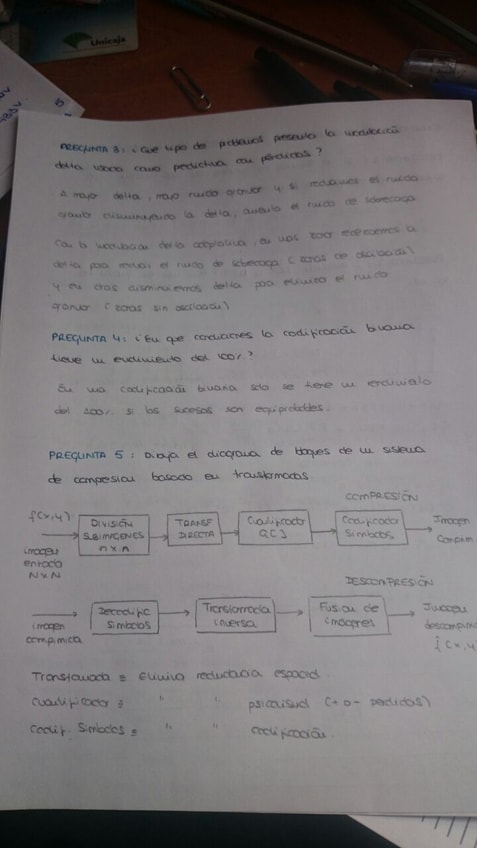 Unicaja
PREGUNTA 3: ¿Que tipo de problemas presenta la modulación
delta usada como predictiva con pérdidas?
A mayor delta, mayor ruido granular y si reducimos el ruido
granular disminuyendo la delta, aumenta el ruido de sobrecarga
Con la modulacion delta adaptativa, en unas zonas
delta para reducir el ruido de sobrecarga (zonas de oscilación)
y en otras disminuiremos delta para eliminar el ruido
granular (zonas sin oscilación)
PREGUNTA 4: ¿En que condiciones la codificación binaria
tiene un rendimiento del 100%?
En una codificación binaria solo se tiene un rendimiento
del 100% si los sucesos son equiprobables.
PREGUNTA 5: Dibuja el diagrama de bloques de un sistema
de compresion basado en transformadas.
COMPRESIÓN
f(x,y)
DIVISIÓN
SUBIMAGENES
n x n
TRANSF
DIRECTA
Cuantificador
Q[]
Codificador
Símbolos
Imagen
Comprim
imagen
entrada
N x N
DESCOMPRESIÓN
imagen
comprimida
Decodific
Simbolos
Transformada
inversa
Fusion de
imagenes
Imagen
descomprim
f(x,y)
Transformada = Elimina redundancia espacial.
Cuantificador = " " psicovisual (+ o - perdidas)
Codif. Simbolos = " " codificación.